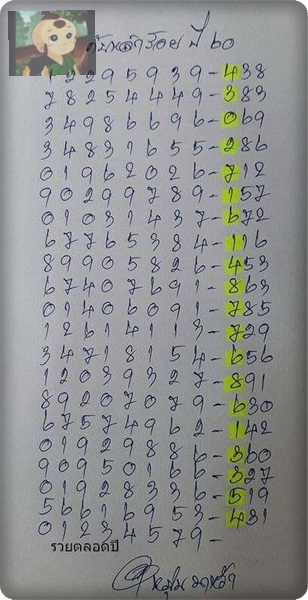 ปี ๖๐
1 2 2 9 5 9 3 9 - 438
7 8 2 5 4 4 4 9 - 383
3 4 9 8 6 6 9 6 - 069
3 4 8 3 1 6 5 5 - 286
0 1 9 6 2 0 2 6 - 712
9 0 2 9 9 7 8 9 - 157
0 1 0 3 1 4 3 7 - 672
6 7 7 6 5 3 8 4 - 116
8 9 9 0 5 8 2 6 - 453
6 7 4 0 7 6 9 1 - 863
0 1 4 0 6 0 9 1 - 785
1 2 6 1 4 1 1 3 - 729
3 4 7 1 8 1 5 4 - 656
1 2 0 3 9 3 2 7 - 891
8 9 2 0 7 0 7 9 - 630
6 7 5 7 4 9 6 2 - 142
0 1 9 2 9 8 8 6 - 360
9 0 9 5 0 1 6 6 - 327
0 1 9 2 8 3 3 6 - 519
5 6 6 1 6 9 5 3 - 431
0 1 2 3 4 5 7 9 -
รวยตลอดปี